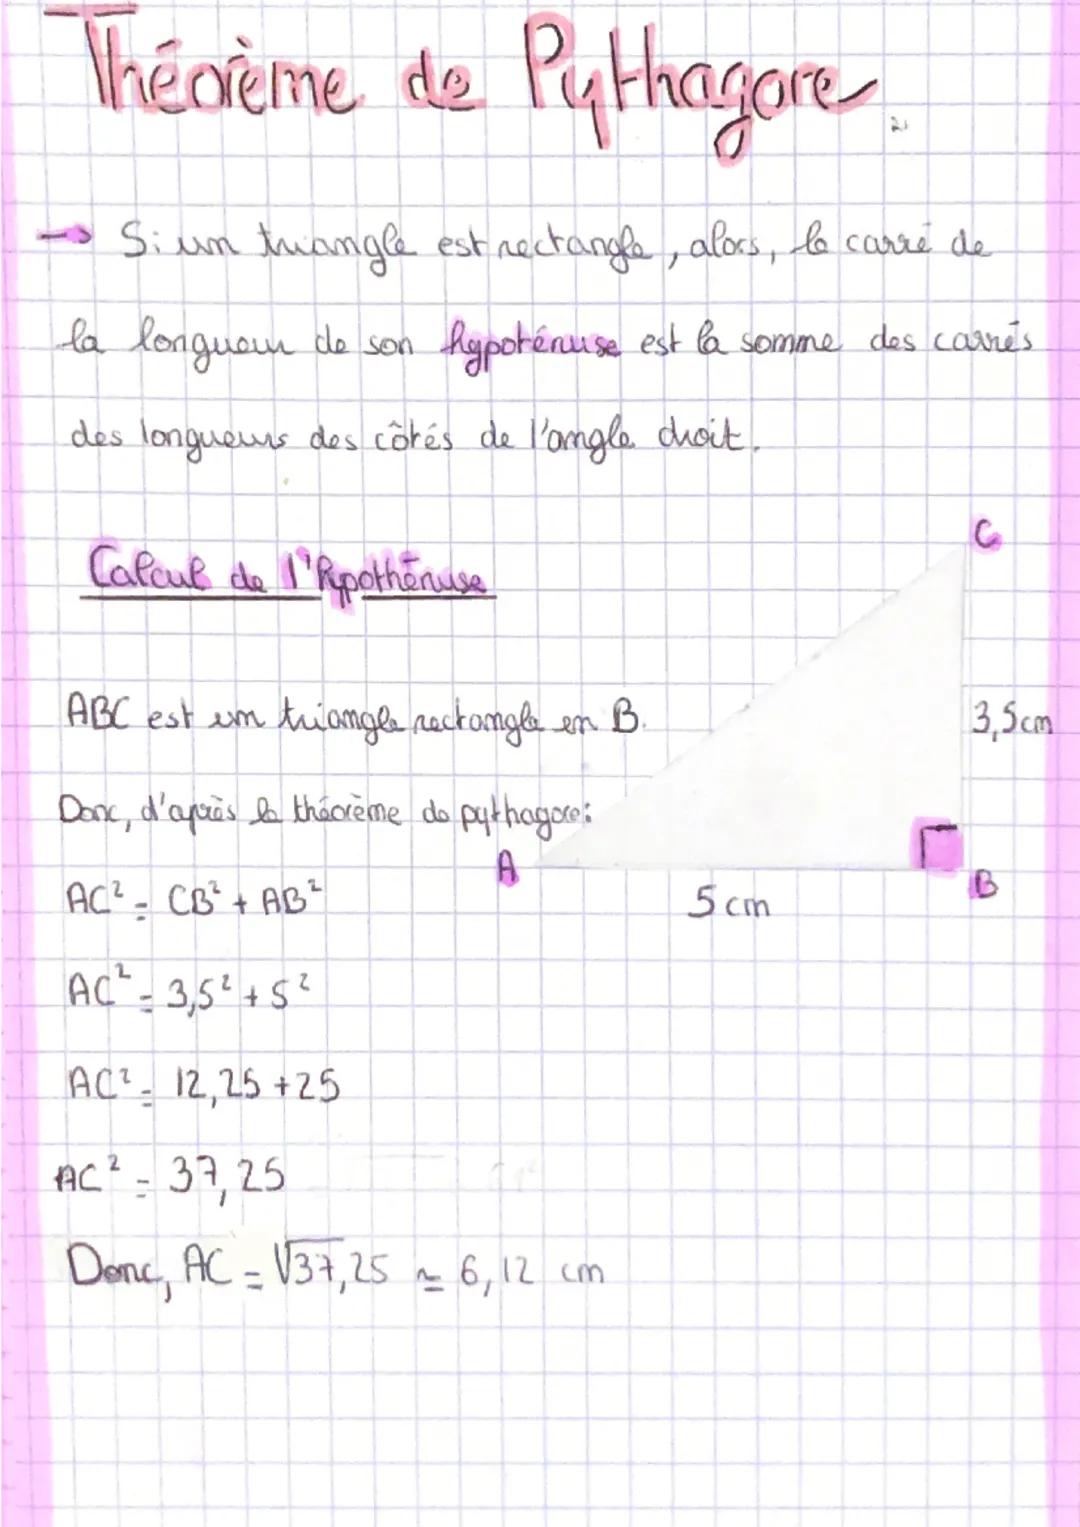 Théorème de Pythagore
→ Si un triangle est rectangle, alors, le carré de
la longueur de son hypoténuse est la somme des carrés
des longueurs des côtés de l'angle droit.
Calcul de l'hypothénuse
C
ABC est un triangle rectangle en B.
3,5cm
Donc, d'après le théorème de pythagore:
A
B
AC² = CB² + AB²
5 cm
AC² = 3,5² + 5²
AC² = 12,25 + 25
AC² = 37,25
Donc, AC = √37,25 ≃ 6,12 cm